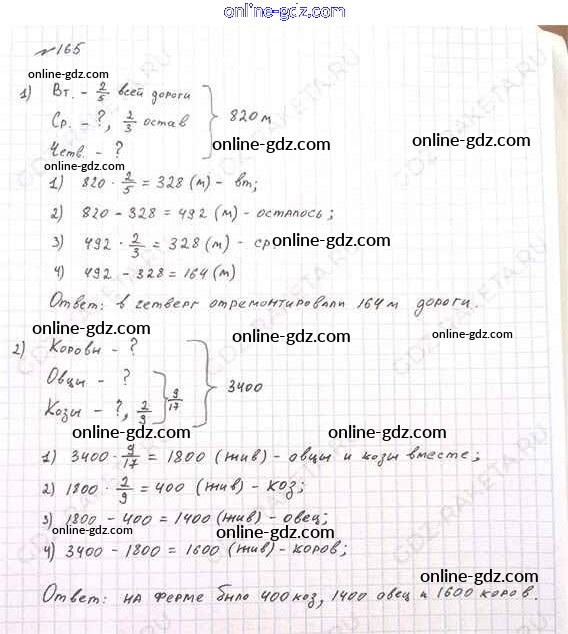 online-gdz.com
№165
online-gdz.com
1) Вт. - 2/5 всей дороги
Ср. - ?, 2/3 остав } 820 м
online-gdz.com online-gdz.com
Четв. - ?
online-gdz.com
1) 820 · 2/5 = 328 (м) - вт;
2) 820 - 328 = 492 (м) - осталось;
3) 492 · 2/3 = 328 (м) - ср online-gdz.com
4) 492 - 328 = 164 (м)
Ответ: в четверг отремонтировали 164 м дороги.
online-gdz.com online-gdz.com
2) Коровы - ?
Овцы - ?
Козы - ?, 2/9 } 9/17 } 3400
online-gdz.com online-gdz.com
1) 3400 · 9/17 = 1800 (жив) - овцы и козы вместе;
2) 1800 · 2/9 = 400 (жив) - коз; online-gdz.com
3) 1800 - 400 = 1400 (жив) - овец;
online-gdz.com online-gdz.com
4) 3400 - 1800 = 1600 (жив) - коров;
online-gdz.com
Ответ: на ферме было 400 коз, 1400 овец и 1600 коров.
online-gdz.com